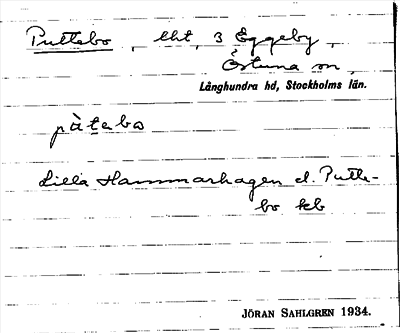 Puttebo, lht, 3 Eggeby,
Östuna sn,
Långhundra hd, Stockholms län.
pùtebo
Lilla Hammarhagen el. Putte-
bo kb
JÖRAN SAHLGREN 1934.